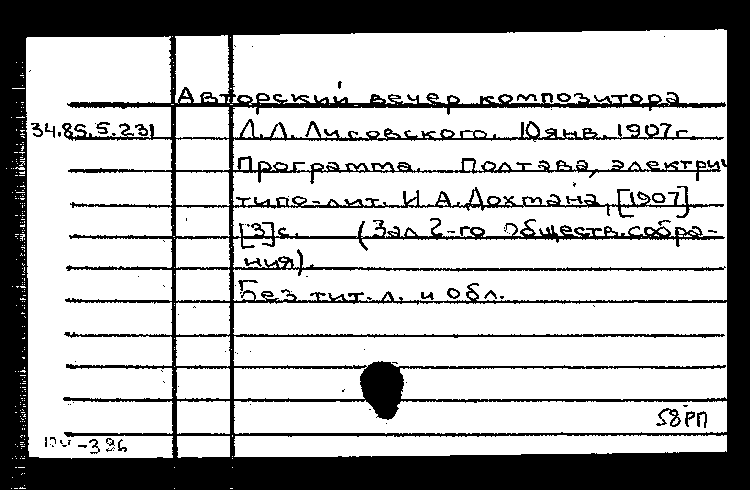 Авторский вечер композитора
34.85.5.231 Л.Л. Лисовского. 10 янв. 1907г.
Программа. Полтава, электрич
типо-лит. И.А. Дохтана, [1907]
[3]с. (Зал 2-го обществ. собра-
ния).
Без тит. л. и обл.
58РП
-396